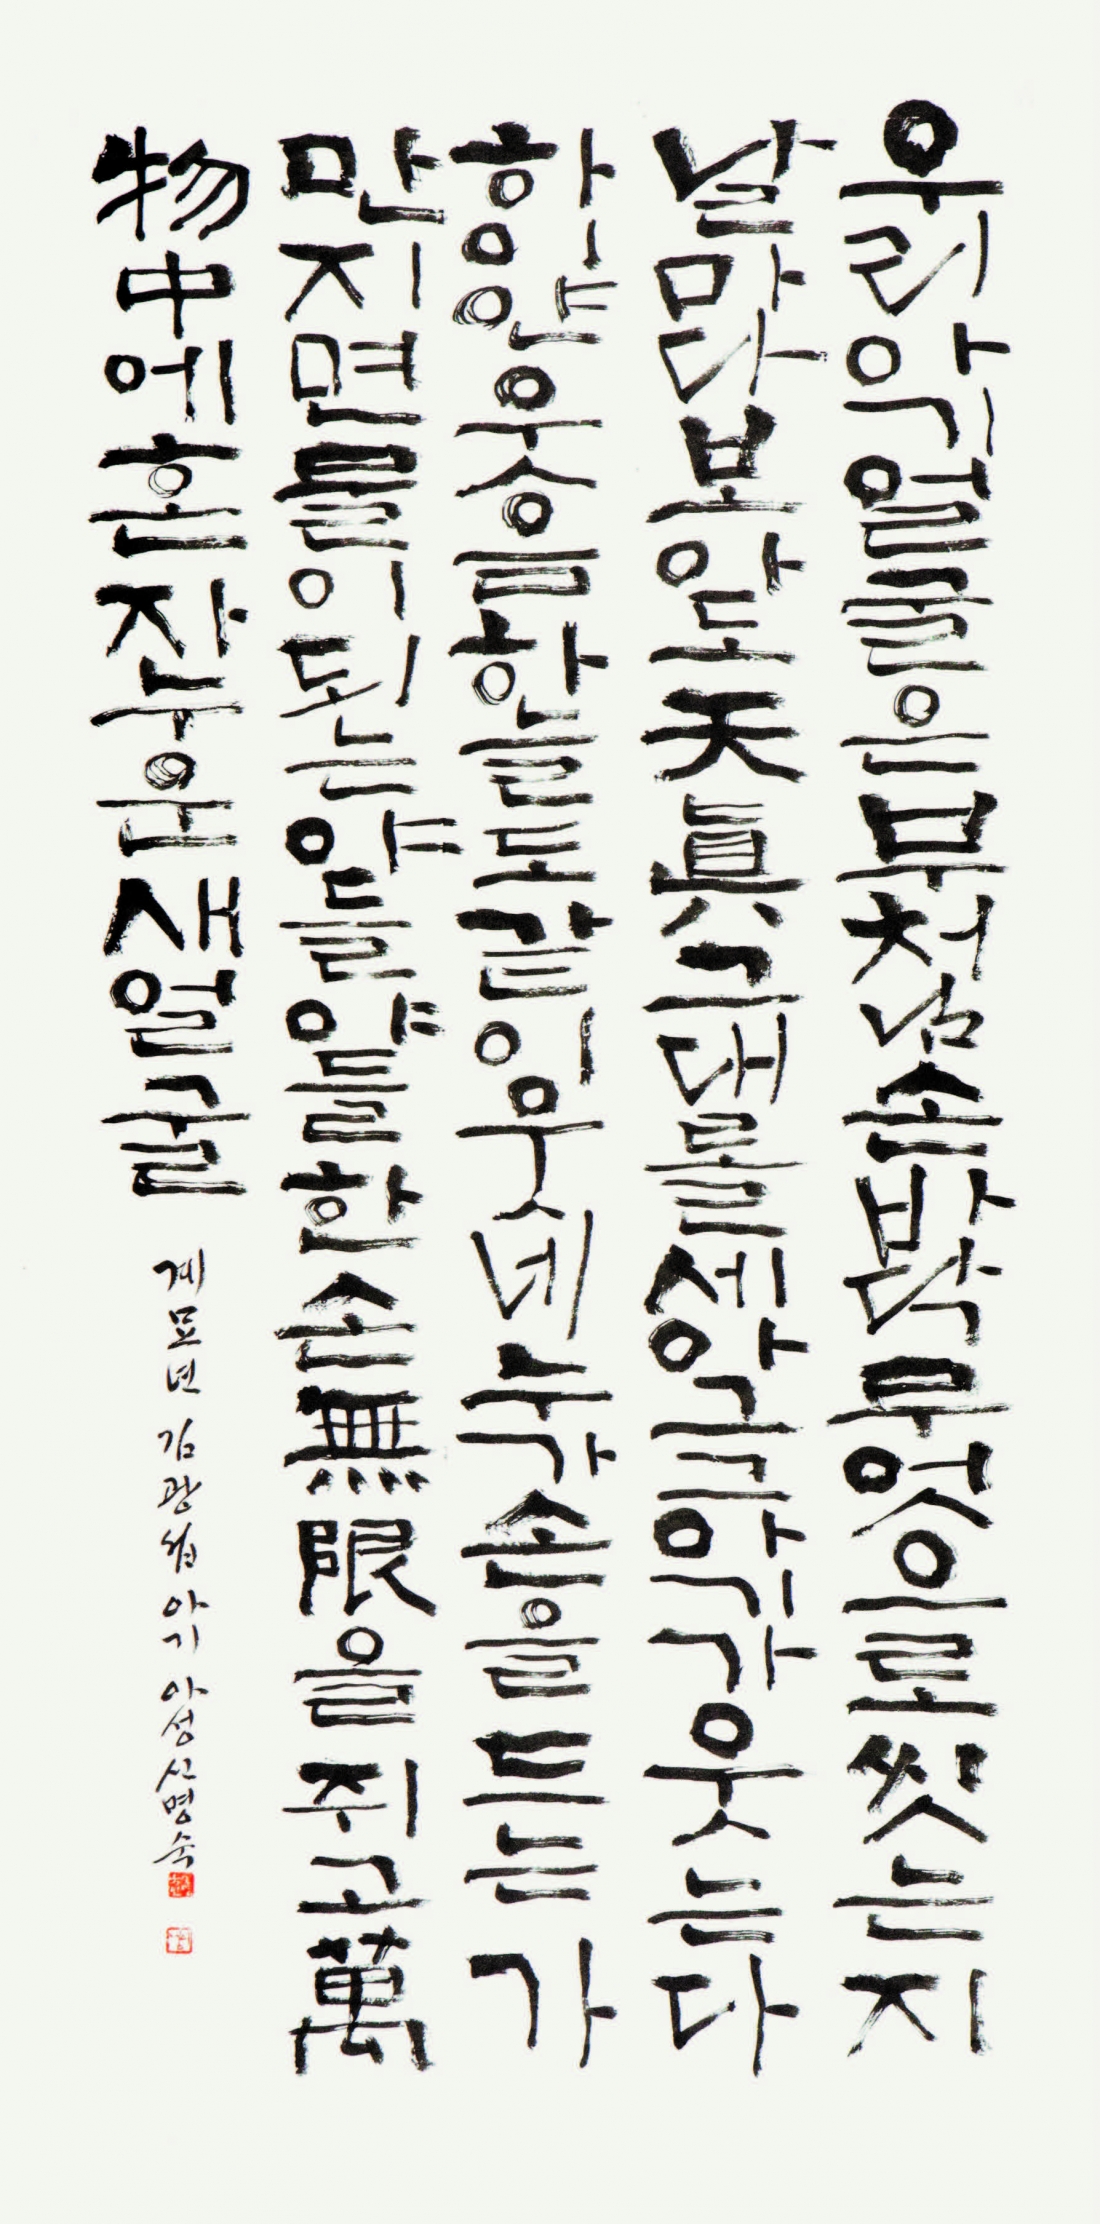 우리 아기 얼굴은 부처님 손바닥 무엇으로 씻는지
날마다 보아도 天眞 그대롤세 아그그 아기가 웃는다
하이얀 웃음 하늘도 같이 웃네 누가 손을 드는가
만지면 물이 되는 야들야들한 손 無限을 쥐고 萬
物中에 혼자 누운 새얼굴
계묘년 김광섭 아기 아성 신명숙